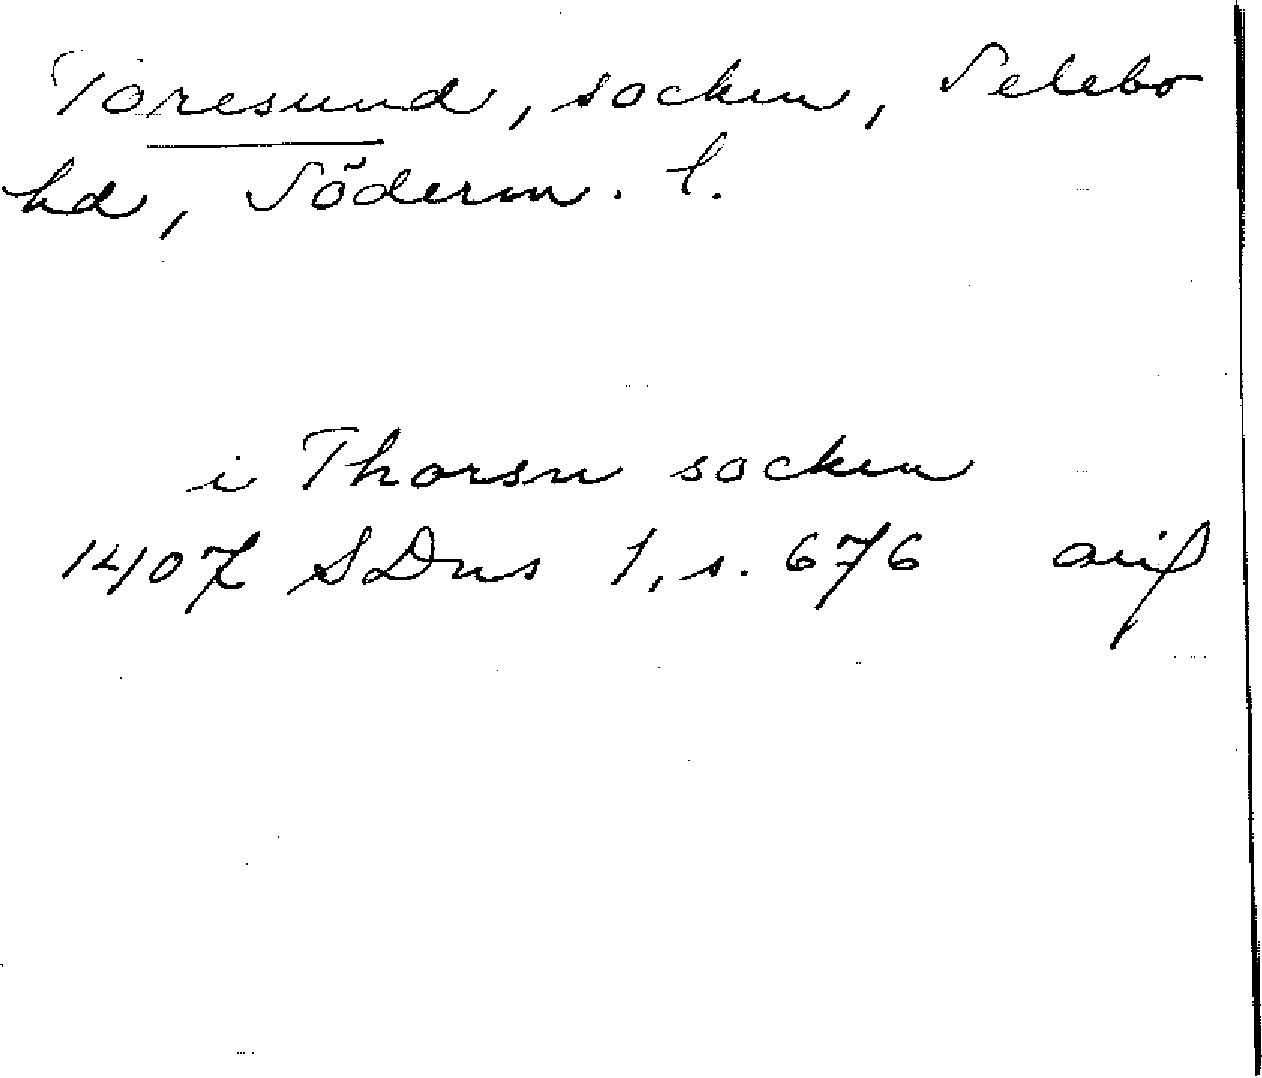 Toresund, socken, Selebo
hd, Söderm. l.
i Thorsn socken
1407 SDns 1, s. 676 avs